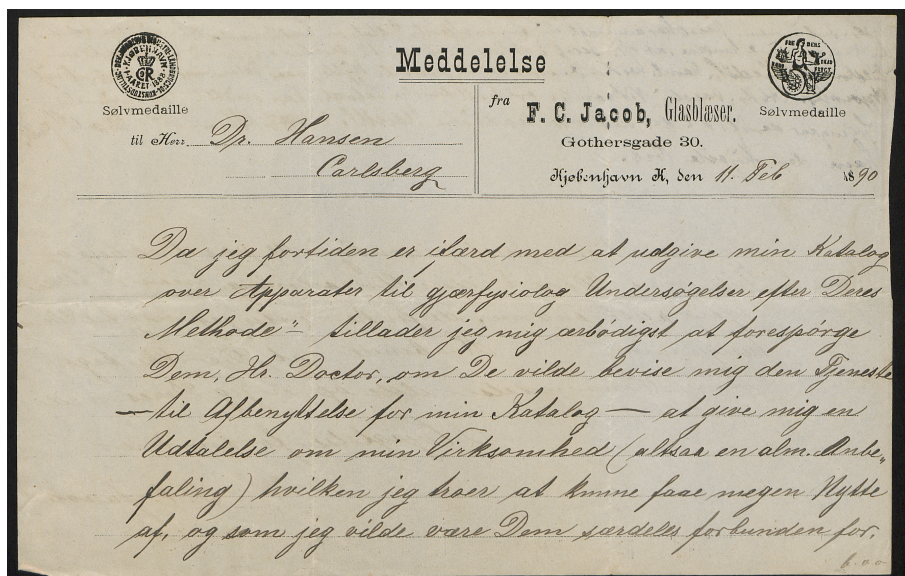 Meddelelse
Sølvmedaille
Sølvmedaille
fra
F. C. Jacob, Glasblæser.
Gothersgade 30.
Kjøbenhavn K, den 11. Feb 1890
til Herr Dr. Hansen
Carlsberg
Da jeg fortiden er ifærd med at udgive min Katalog
over Apparater til gjærfysiolog Undersøgelser efter Deres
Methode" tillader jeg mig ærbödigst at forespörge
Dem, Hr. Doctor, om De vilde bevise mig den Tjeneste
— til Afbenyttelse for min Katalog — at give mig en
Udtalelse om min Virksomhed (altsaa en alm. Anbe„
faling) hvilken jeg troer at kunne faae megen Nytte
af, og som jeg vilde være Dem særdeles forbunden for.